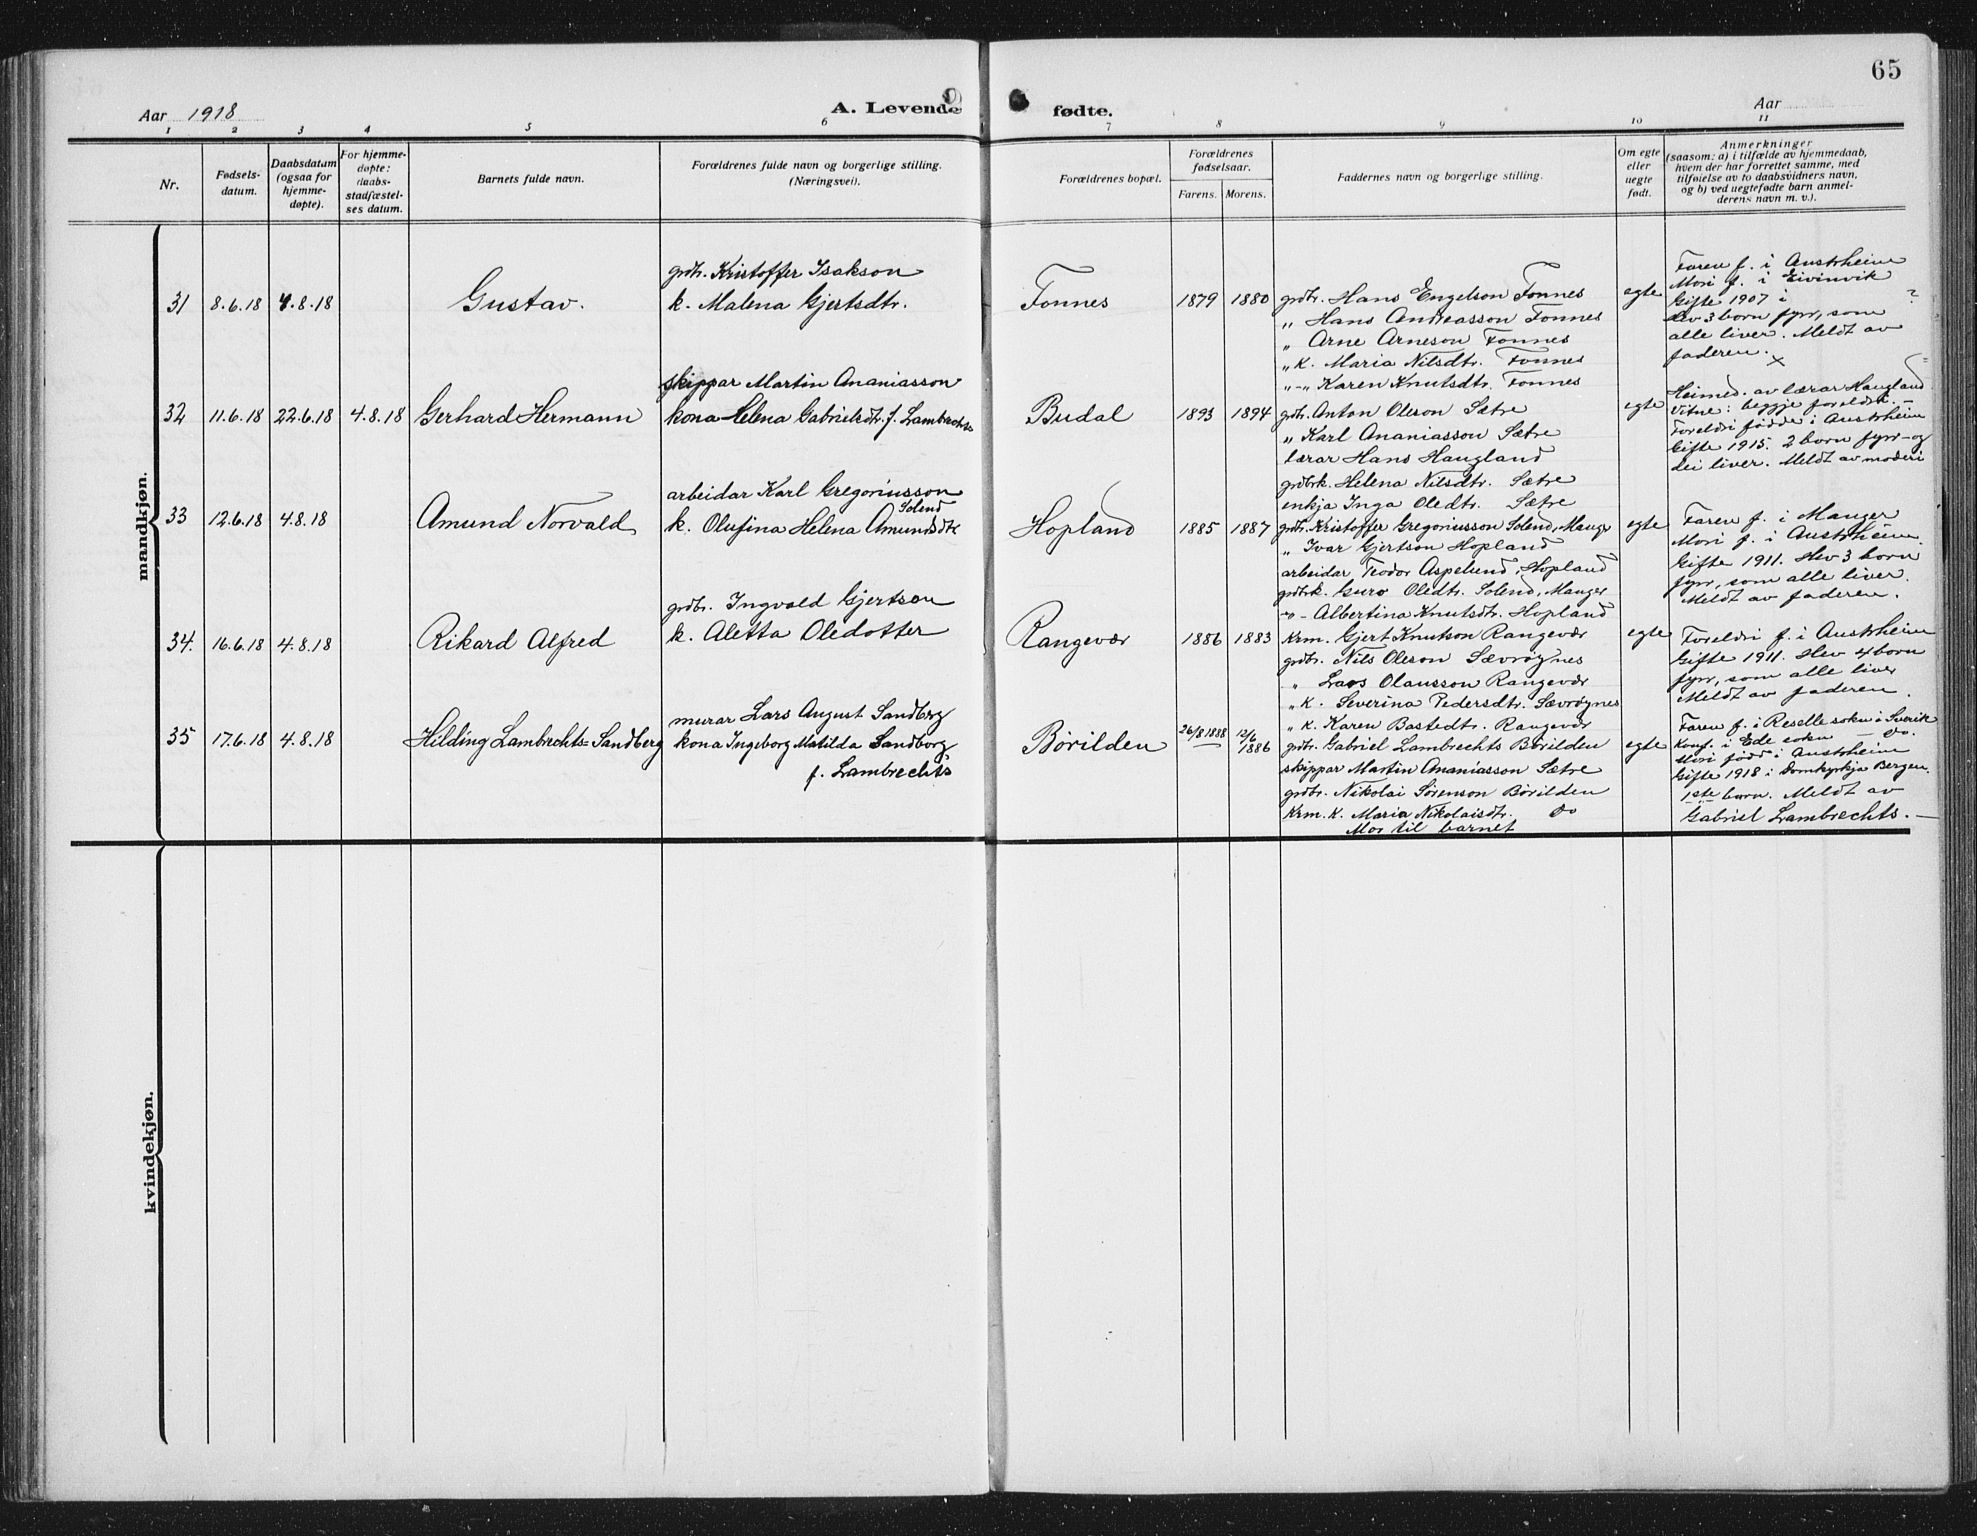 65
Aar 1918
A. Levende fødte.
Aar
1 2 3 4 5 6 7 8 9 10 11
Nr.
Fødsels-
datum.
Daabsdatum
(ogsaa for
hjemme-
døpte).
For hjemme-
døpte:
daabs-
stadfæstel-
ses datum.
Barnets fulde navn.
Forældrenes fulde navn og borgerlige stilling.
(Næringsvei).
Forældrenes bopæl.
Forældrenes
fødselsaar.
Farens. Morens.
Faddernes navn og borgerlige stilling.
Om egte
eller
uegte
født.
Anmerkninger
(saasom: a) i tilfælde av hjemmedaab,
hvem der har forrettet samme, med
tilføielse av to daabsvidners navn,
og b) ved uegtefødte barn anmel-
derens navn m. v.).
mandkjøn.
31 8.6.18 4.8.18
Gustav.
grdbr. Kristoffer Isakson
k. Malena Gjertsdtr.
Fonnes
1879 1880
grdbr. Hans Engelson Fonnes
„ Hans Andreasson Fonnes
„ Arne Arneson Fonnes
„ k. Maria Nilsdtr. Fonnes
„ -„ Karen Knutsdtr. Fonnes
egte
Faren f. i Austrheim
Mori f. i Eivinvik
Gifte 1907 i ?
Hev 3 born fyrr, som
alle liver. Meldt av
faderen. x
32 11.6.18 22.6.18 4.8.18
Gerhard Hermann
skippar Martin Ananiasson
kona Helena Gabrielsdtr. f. Lambrechts
Budal
1893 1894
grdbr. Anton Oleson Sætre
„ Karl Ananiasson Sætre
lærar Hans Haugland
grdbrk. Helena Nilsdtr. Sætre
enkja Inga Oledtr. Sætre
egte
Heimed. av lærar Haugland
Vitne: beggje foreldri. –
Foreldri fødde i Austrheim
Gifte 1915. 2 born fyrr og
dei liver. Meldt av moderi
33 12.6.18 4.8.18
Amund Norvald
arbeidar Karl Gregoriusson
Solend
k. Olufina Helena Amundsdtr
Hopland
1885 1887
grdbr. Kristoffer Gregoriusson Solend, Mange
„ Ivar Gjertson Hopland
arbeidar Teodor Aspelund, Hopland
grdbrk. Guro Oledtr. Solend, Manger
-„- Albertina Knutsdtr. Hopland
egte
Faren f. i Manger
Mori f. i Austrheim.
Gifte 1911. Hev 3 born
fyrr, som alle liver.
Meldt av faderen.
34. 16.6.18 4.8.18
Rikard Alfred
grdbr. Ingvald Gjertson
k. Aletta Oledotter
Rangevær
1886 1883
Krm. Gjert Knutson Rangevær
grdbr. Nils Oleson Sævrøynes
„ Lars Olausson Rangevær
„ k. Severina Pedersdtr. Sævrøynes
„ k. Karen Bastedtr. Rangevær
egte
Foreldri f. i Austrheim
Gifte 1911. Hev 4 born
fyrr, som alle liver
Meldt av faderen.
35 17.6.18 4.8.18
Hilding Lambrechts=Sandberg
murar Lars August Sandberg
kona Ingeborg Matilda Sandborg
f. Lambrechts
Børilden
26/8 1888 12/6 1886
grdbr. Gabriel Lambrechts Børilden
skippar Martin Ananiasson Sætre
grdbr. Nikolai Sørenson Børilden
Krm. k. Maria Nikolaisdtr. do
Mor til barnet
egte
Faren f. i Reselle sokn i Sverik
Konf. i Ede sokn – do.
Mori fødd i Austrheim
Gifte 1918 i Domkyrkja Bergen.
1ste barn. Meldt av
Gabriel Lambrechts. –
kvindekjøn.